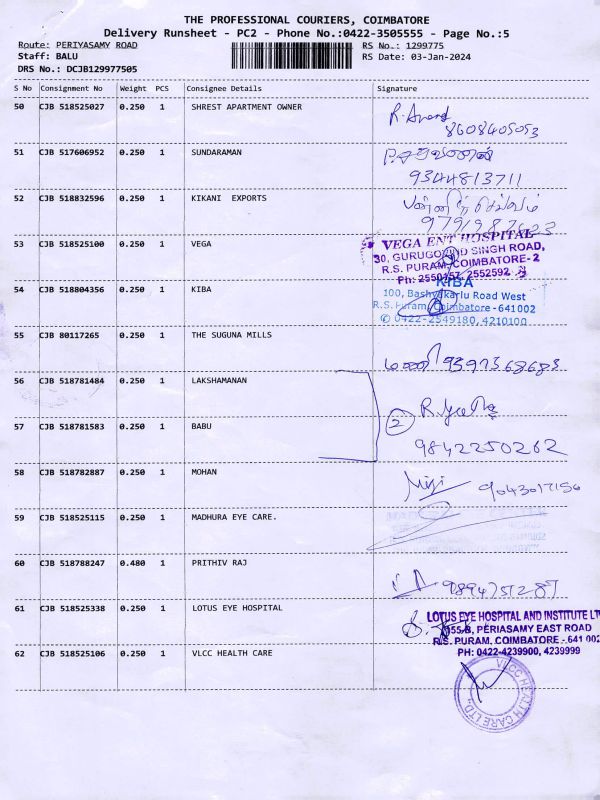 THE PROFESSIONAL COURIERS, COIMBATORE
Delivery Runsheet - PC2 - Phone No.:0422-3505555 - Page No.:5
Route: PERIYASAMY ROAD RS No.: 1299775
Staff: BALU RS Date: 03-Jan-2024
DRS No.: DCJB129977505
S No Consignment No Weight PCS Consignee Details Signature
50 CJB 518525027 0.250 1 SHREST APARTMENT OWNER R. Anand
8608405053
51 CJB 517606952 0.250 1 SUNDARAMAN
9344813711
52 CJB 518832596 0.250 1 KIKANI EXPORTS
53 CJB 518525100 0.250 1 VEGA VEGA ENT HOSPITAL
30, GURUGOVIND SINGH ROAD,
R.S. PURAM, COIMBATORE-2
Ph: 2550757, 2552592
54 CJB 518804356 0.250 1 KIBA KIBA
100, Bashyakarlu Road West
R.S. Puram, Coimbatore - 641 002
✆ 0422-2549180, 4210100
55 CJB 80117265 0.250 1 THE SUGUNA MILLS
9597368683
56 CJB 518781484 0.250 1 LAKSHAMANAN
57 CJB 518781583 0.250 1 BABU 2
9842250262
58 CJB 518782887 0.250 1 MOHAN 9043017156
59 CJB 518525115 0.250 1 MADHURA EYE CARE.
60 CJB 518788247 0.480 1 PRITHIV RAJ
9894751287
61 CJB 518525338 0.250 1 LOTUS EYE HOSPITAL LOTUS EYE HOSPITAL AND INSTITUTE LT
155-B, PERIASAMY EAST ROAD
R.S. PURAM, COIMBATORE - 641 002
PH: 0422-4239900, 4239999
62 CJB 518525106 0.250 1 VLCC HEALTH CARE
VLCC HEALTH CARE LTD.,